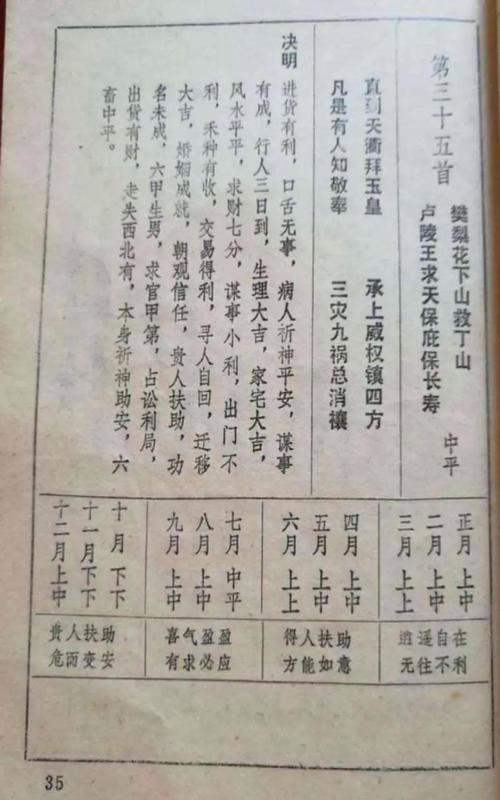 第三十五首
樊梨花下山救丁山
卢陵王求天保庇保长寿
中平
直到天衢拜玉皇
承上威权镇四方
凡是有人知敬奉
三灾九祸总消禳
决明
进货有利，口舌无事，病人祈神平安，谋事
有成，行人三日到，生理大吉，家宅大吉，
风水平平，求财七分，谋事小利，出门不
利，禾种有收，交易得利，寻人自回，迁移
大吉，婚姻成就，朝观信任，贵人扶助，功
名未成，六甲生男，求官甲第，占讼利局，
出货有财，走失西北有，本身祈神助安，六
畜中平。
正月 上中
二月 上中
三月 上上
四月 上中
五月 上中
六月 上上
七月 中平
八月 上中
九月 上中
十月 下下
十一月 下下
十二月 上中
逍遥自在
无往不利
得人扶助
方能如意
喜气盈盈
有求必应
贵人扶助
危而变安
35